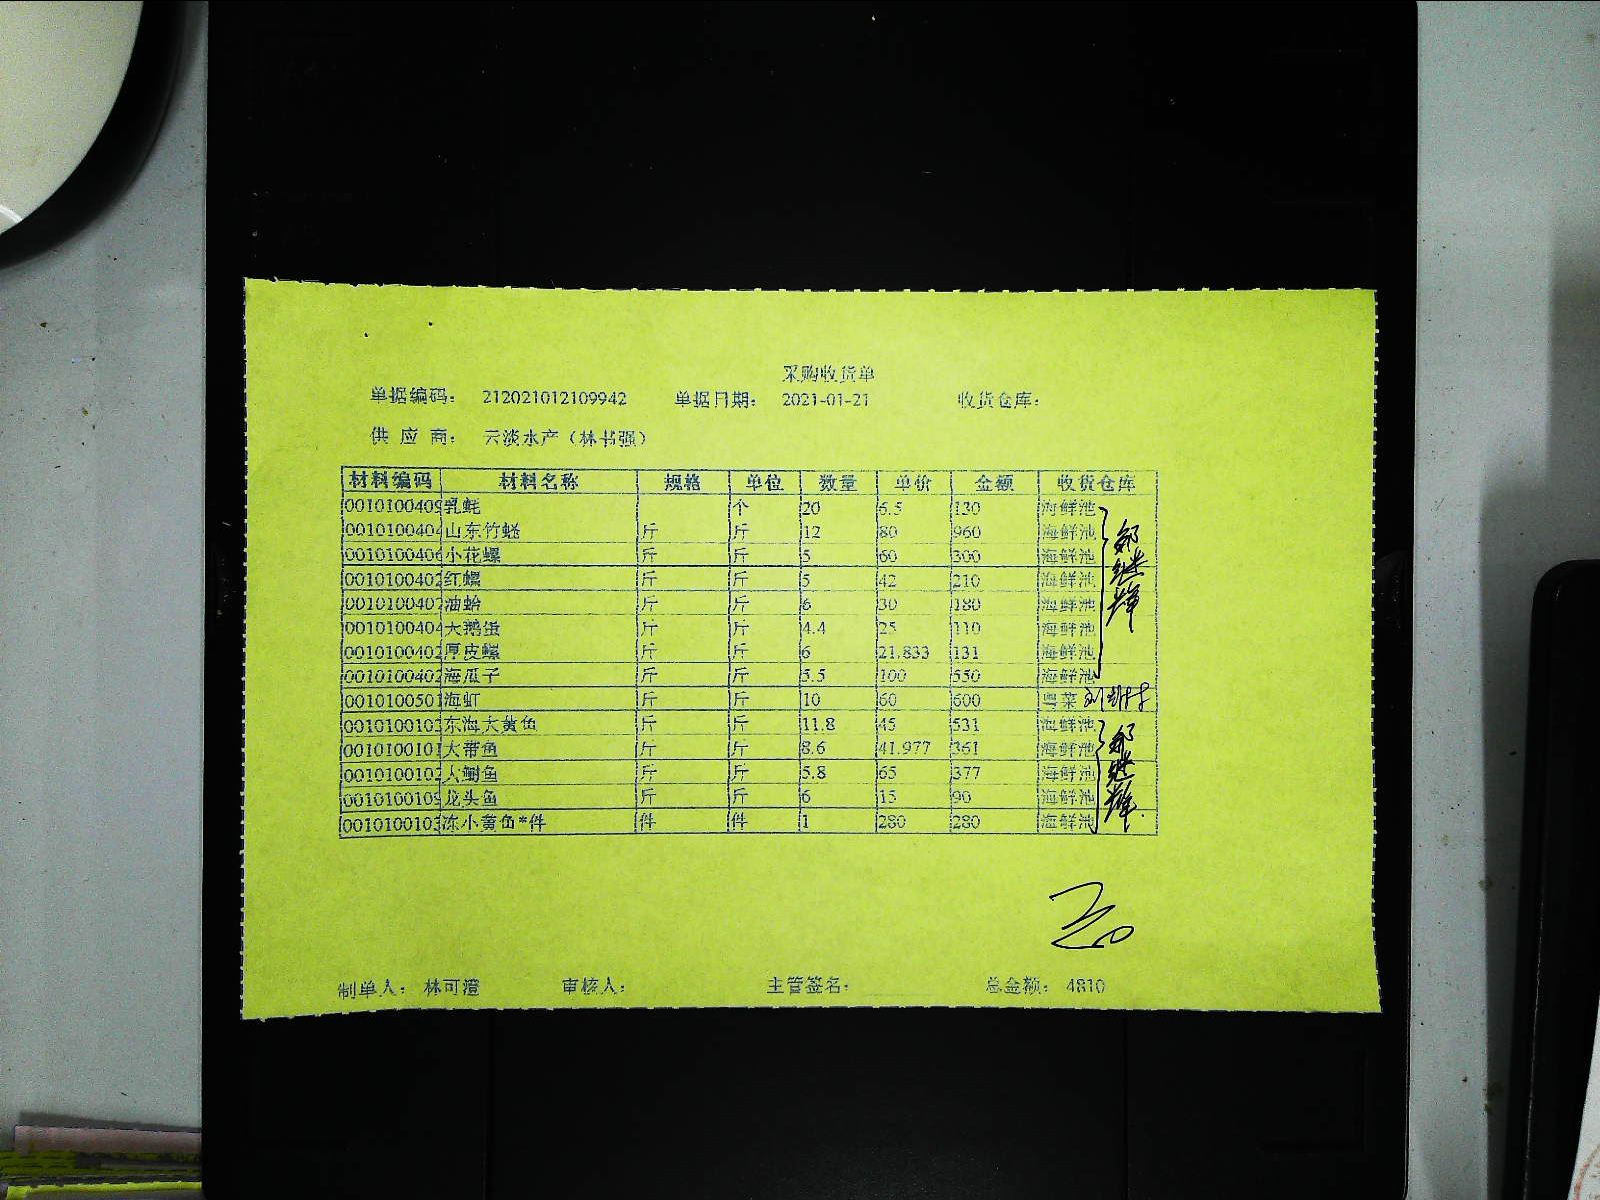 采购收货单
单据编码： 212021012109942 单据日期： 2021-01-21 收货仓库：
供 应 商： 云淡水产（林书强）
材料编码 材料名称 规格 单位 数量 单价 金额 收货仓库
0010100409 乳蚝 个 20 6.5 130 海鲜池
0010100404 山东竹蛏 斤 斤 12 80 960 海鲜池
0010100406 小花螺 斤 斤 5 60 300 海鲜池
0010100402 红螺 斤 斤 5 42 210 海鲜池
0010100407 油蛤 斤 斤 6 30 180 海鲜池
0010100404 大鹅蛋 斤 斤 4.4 25 110 海鲜池
0010100402 厚皮螺 斤 斤 6 21.833 131 海鲜池
0010100402 海瓜子 斤 斤 5.5 100 550 海鲜池
郑继辉
0010100501 海虹 斤 斤 10 60 600 粤菜
0010100103 东海大黄鱼 斤 斤 11.8 45 531 海鲜池
0010100101 大带鱼 斤 斤 8.6 41.977 361 海鲜池
0010100102 大鲥鱼 斤 斤 5.8 65 377 海鲜池
0010100109 龙头鱼 斤 斤 6 15 90 海鲜池
0010100103 冻小黄鱼*件 件 件 1 280 280 海鲜池
郑继辉
制单人： 林可澄 审核人： 主管签名： 总金额： 4810